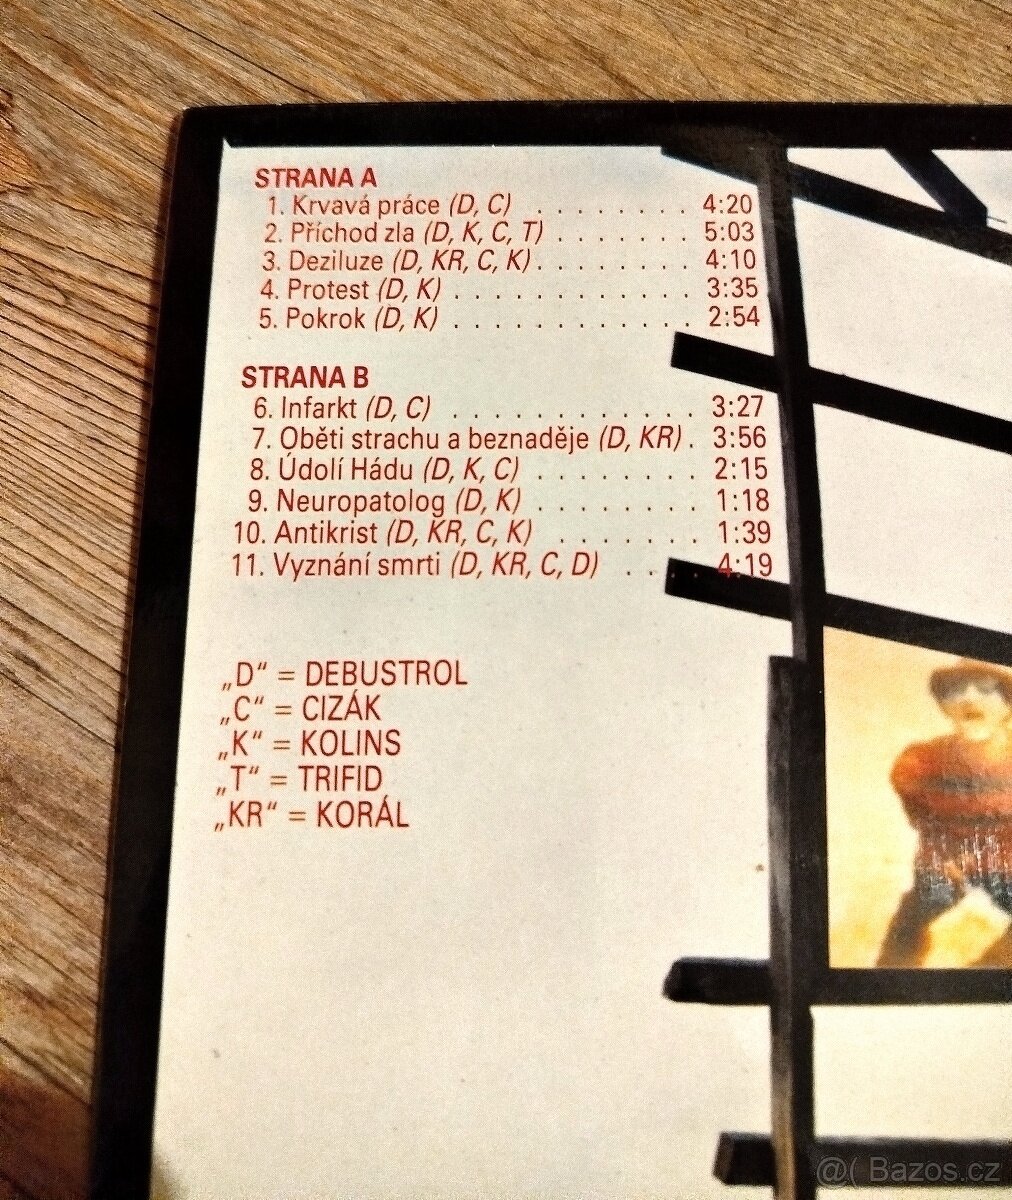 STRANA A
1. Krvavá práce (D, C) . . . . . . . . 4:20
2. Příchod zla (D, K, C, T) . . . . . . . 5:03
3. Deziluze (D, KR, C, K) . . . . . . . . 4:10
4. Protest (D, K) . . . . . . . . . . . . . 3:35
5. Pokrok (D, K) . . . . . . . . . . . . . 2:54
STRANA B
6. Infarkt (D, C) . . . . . . . . . . . . . 3:27
7. Oběti strachu a beznaděje (D, KR) . 3:56
8. Údolí Hádu (D, K, C) . . . . . . . . 2:15
9. Neuropatolog (D, K) . . . . . . . . 1:18
10. Antikrist (D, KR, C, K) . . . . . . . 1:39
11. Vyznání smrti (D, KR, C, D) . . . . 4:19
„D“ = DEBUSTROL
„C“ = CIZÁK
„K“ = KOLINS
„T“ = TRIFID
„KR“ = KORÁL
@( Bazos.cz